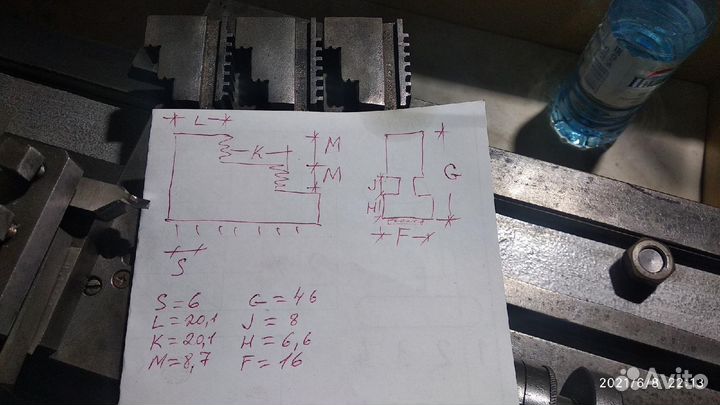 L
K
M
M
G
J
H
F
S
S = 6 G = 46
L = 20,1 J = 8
K = 20,1 H = 6,6
M = 8,7 F = 16
Avito
2021/6/8 22:13